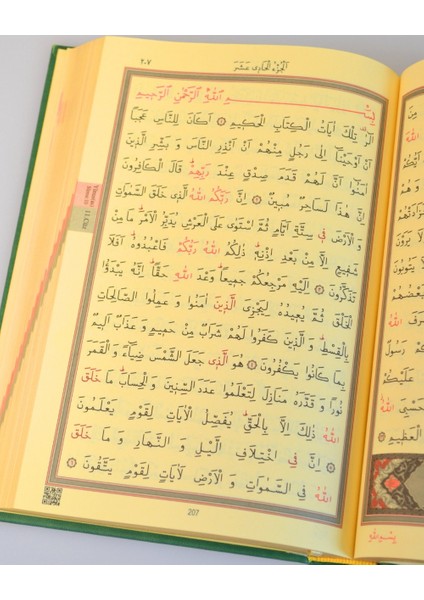 ٢٠٧
اَلْجُزْءُ الْحَادِى عَشَرَ
بِسْمِ اللّٰهِ الرَّحْمٰنِ الرَّحِيمِ
الٓرٰ تِلْكَ اٰيَاتُ الْكِتَابِ الْحَكِيمِ ۝١ اَكَانَ لِلنَّاسِ عَجَبًا
اَنْ اَوْحَيْنَٓا اِلٰى رَجُلٍ مِنْهُمْ اَنْ اَنْذِرِ النَّاسَ وَ بَشِّرِ الَّذِينَ
اٰمَنُٓوا اَنَّ لَهُمْ قَدَمَ صِدْقٍ عِنْدَ رَبِّهِمْ قَالَ الْكَافِرُونَ
اِنَّ هٰذَا لَسَاحِرٌ مُبِينٌ ۝٢ اِنَّ رَبَّكُمُ اللّٰهُ الَّذِى خَلَقَ السَّمٰوَاتِ
وَ الْاَرْضَ فِى سِتَّةِ اَيَّامٍ ثُمَّ اسْتَوٰى عَلَى الْعَرْشِ يُدَبِّرُ الْاَمْرَ مَا مِنْ
شَفِيعٍ اِلَّا مِنْ بَعْدِ اِذْنِهِ ذٰلِكُمُ اللّٰهُ رَبُّكُمْ فَاعْبُدُوهُ اَفَلَا
تَذَكَّرُونَ ۝٣ اِلَيْهِ مَرْجِعُكُمْ جَمِيعًا وَعْدَ اللّٰهِ حَقًّا اِنَّهُ يَبْدَؤُا
الْخَلْقَ ثُمَّ يُعِيدُهُ لِيَجْزِىَ الَّذِينَ اٰمَنُوا وَ عَمِلُوا الصَّالِحَاتِ
بِالْقِسْطِ وَ الَّذِينَ كَفَرُوا لَهُمْ شَرَابٌ مِنْ حَمِيمٍ وَ عَذَابٌ اَلِيمٌ
بِمَا كَانُوا يَكْفُرُونَ ۝٤ هُوَ الَّذِى جَعَلَ الشَّمْسَ ضِيَٓاءً وَ الْقَمَرَ
نُورًا وَ قَدَّرَهُ مَنَازِلَ لِتَعْلَمُوا عَدَدَ السِّنِينَ وَ الْحِسَابَ مَا خَلَقَ
اللّٰهُ ذٰلِكَ اِلَّا بِالْحَقِّ يُفَصِّلُ الْاٰيَاتِ لِقَوْمٍ يَعْلَمُونَ
۝٥ اِنَّ فِى اخْتِلَافِ الَّيْلِ وَ النَّهَارِ وَ مَا خَلَقَ
اللّٰهُ فِى السَّمٰوَاتِ وَ الْاَرْضِ لَاٰيَاتٍ لِقَوْمٍ يَتَّقُونَ ۝٦
207
11.CÜZ
مِنْ
اللّٰهُ
رَسُولٌ
عَلَيْكُمْ
حَسْبِىَ اللّٰهُ
الْعَظِيمِ